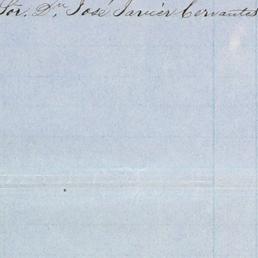 Sor. Dn. José Javier Cervantes